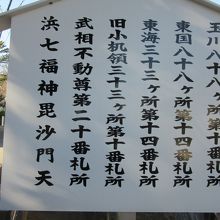 玉川八十八ヶ所第
東国八十八ヶ所第
東海三十三ヶ所第十四番札所
旧小机領三十三ヶ所第十番札所
武相不動尊第二十番札所
浜七福神毘沙門天